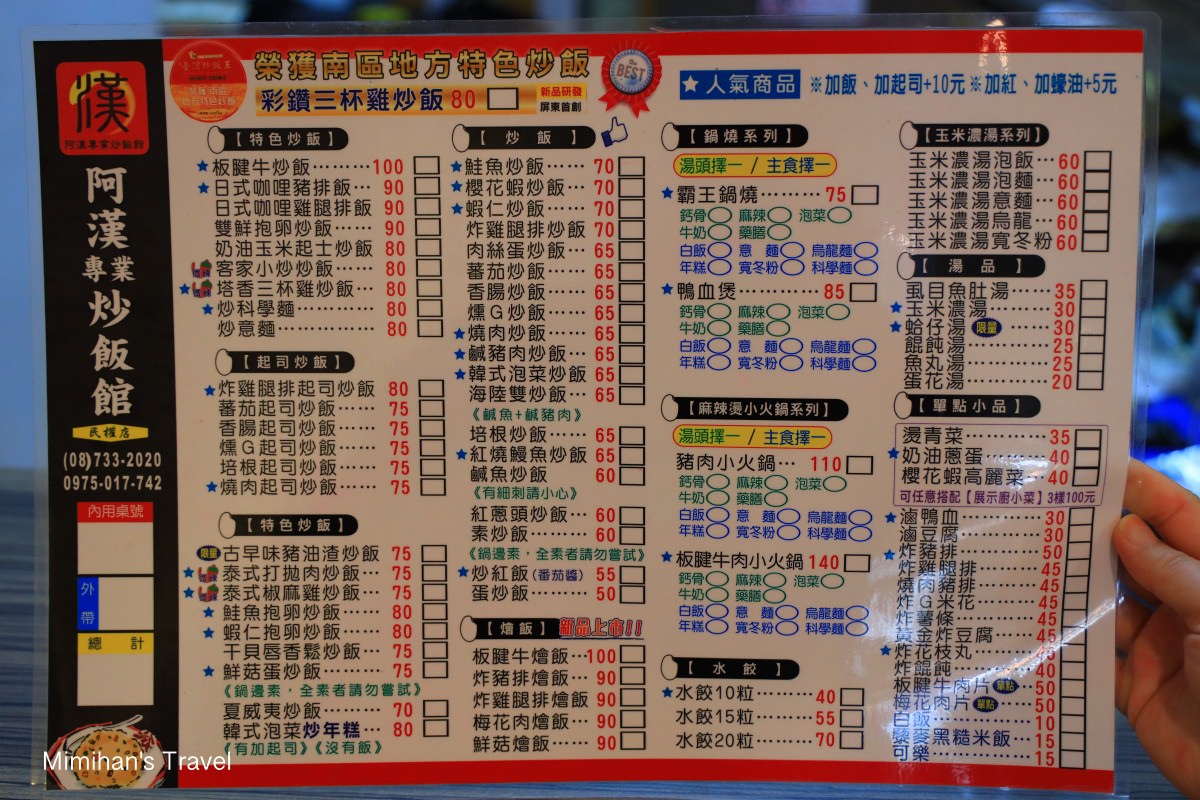 漢
阿漢專業炒飯館
阿漢專業炒飯館
民權店
(08)733-2020
0975-017-742
內用桌號
外帶
總計
榮獲南區地方特色炒飯
彩鑽三杯雞炒飯 80
新品研發
屏東首創
BEST
★人氣商品 ※加飯、加起司+10元 ※加紅、加蠔油+5元
【特色炒飯】
★板腱牛炒飯…… 100
★日式咖哩豬排飯… 90
日式咖哩雞腿排飯 90
雙鮮抱卵炒飯…… 90
奶油玉米起士炒飯 80
客家小炒炒飯…… 80
★塔香三杯雞炒飯… 80
★炒科學麵……… 80
炒意麵………… 80
【起司炒飯】
★炸雞腿排起司炒飯 80
蕃茄起司炒飯… 75
香腸起司炒飯… 75
燻G起司炒飯… 75
培根起司炒飯… 75
★燒肉起司炒飯… 75
【特色炒飯】
限量 古早味豬油渣炒飯 75
★泰式打拋肉炒飯… 75
★泰式椒麻雞炒飯… 75
★鮭魚抱卵炒飯… 80
★蝦仁抱卵炒飯… 80
干貝唇香鬆炒飯… 75
★鮮菇蛋炒飯…… 75
《鍋邊素，全素者請勿嘗試》
夏威夷炒飯…… 70
韓式泡菜炒年糕… 80
《有加起司》《沒有飯》
【炒飯】
★鮭魚炒飯…… 70
★櫻花蝦炒飯… 70
★蝦仁炒飯…… 70
炸雞腿排炒飯 70
肉絲蛋炒飯… 65
蕃茄炒飯…… 65
香腸炒飯…… 65
燻G炒飯…… 65
★燒肉炒飯…… 65
★鹹豬肉炒飯… 65
★韓式泡菜炒飯 65
海陸雙炒飯… 65
《鹹魚+鹹豬肉》
培根炒飯…… 65
★紅燒鰻魚炒飯 65
鹹魚炒飯…… 60
《有細刺請小心》
紅蔥頭炒飯… 60
素炒飯……… 60
《鍋邊素，全素者請勿嘗試》
★炒紅飯(番茄醬) 55
蛋炒飯……… 50
【燴飯】新品上市!!
板腱牛燴飯…100
炸豬排燴飯… 90
炸雞腿排燴飯 90
梅花肉燴飯… 90
鮮菇燴飯…… 90
【鍋燒系列】
湯頭擇一 / 主食擇一
★霸王鍋燒……… 75
鈣骨 麻辣 泡菜
牛奶 藥膳
白飯 意麵 烏龍麵
年糕 寬冬粉 科學麵
★鴨血煲………… 85
鈣骨 麻辣 泡菜
牛奶 藥膳
白飯 意麵 烏龍麵
年糕 寬冬粉 科學麵
【麻辣燙小火鍋系列】
湯頭擇一 / 主食擇一
豬肉小火鍋… 110
鈣骨 麻辣 泡菜
牛奶 藥膳
白飯 意麵 烏龍麵
年糕 寬冬粉 科學麵
★板腱牛肉小火鍋 140
鈣骨 麻辣 泡菜
牛奶 藥膳
白飯 意麵 烏龍麵
年糕 寬冬粉 科學麵
【水餃】
★水餃10粒……… 40
水餃15粒……… 55
水餃20粒……… 70
【玉米濃湯系列】
玉米濃湯泡飯… 60
玉米濃湯泡麵… 60
玉米濃湯意麵… 60
玉米濃湯烏龍… 60
玉米濃湯寬冬粉 60
【湯品】
虱目魚肚湯…… 35
★玉米濃湯……… 30
★蛤仔湯 限量 … 30
餛飩湯………… 25
魚丸湯………… 25
蛋花湯………… 20
【單點小品】
燙青菜………… 35
★奶油蔥蛋……… 40
櫻花蝦高麗菜… 40
可任意搭配【展示廚小菜】3樣100元
★滷鴨血………… 30
滷豆腐………… 30
★炸豬排………… 50
炸雞腿排……… 45
燒肉豬排……… 45
炸G米花……… 45
炸薯條………… 45
黃金炸豆腐…… 45
★炸花枝丸……… 45
炸餛飩………… 40
板腱牛肉片 單點 50
梅花肉片 單點 50
白飯…………… 10
藜麥黑糙米飯… 15
可樂…………… 15
Mimihan's Travel